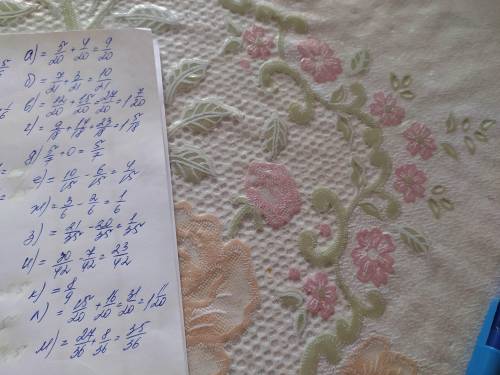 а) = 5/20 + 4/20 = 9/20
б) = 7/21 + 3/21 = 10/21
в) = 12/20 + 15/20 = 27/20 = 1 7/20
г) = 9/18 + 14/18 = 23/18 = 1 5/18
д) 5/7 + 0 = 5/7
е) = 10/15 - 6/15 = 4/15
ж) = 3/6 - 2/6 = 1/6
з) = 21/35 - 20/35 = 1/35
и) = 30/42 - 7/42 = 23/42
к) =
л) = 15/20 + 16/20 = 31/20 = 1 11/20
м) = 27/36 + 8/36 = 35/36